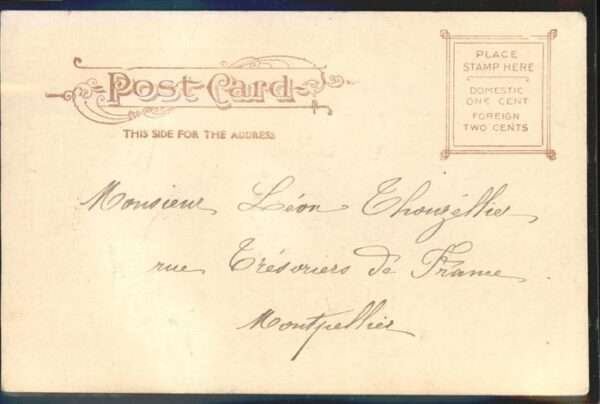 Post Card
THIS SIDE FOR THE ADDRESS
PLACE
STAMP HERE
DOMESTIC
ONE CENT
FOREIGN
TWO CENTS
Monsieur Léon Thouzéllier
rue Trésoriers de France
Montpellier